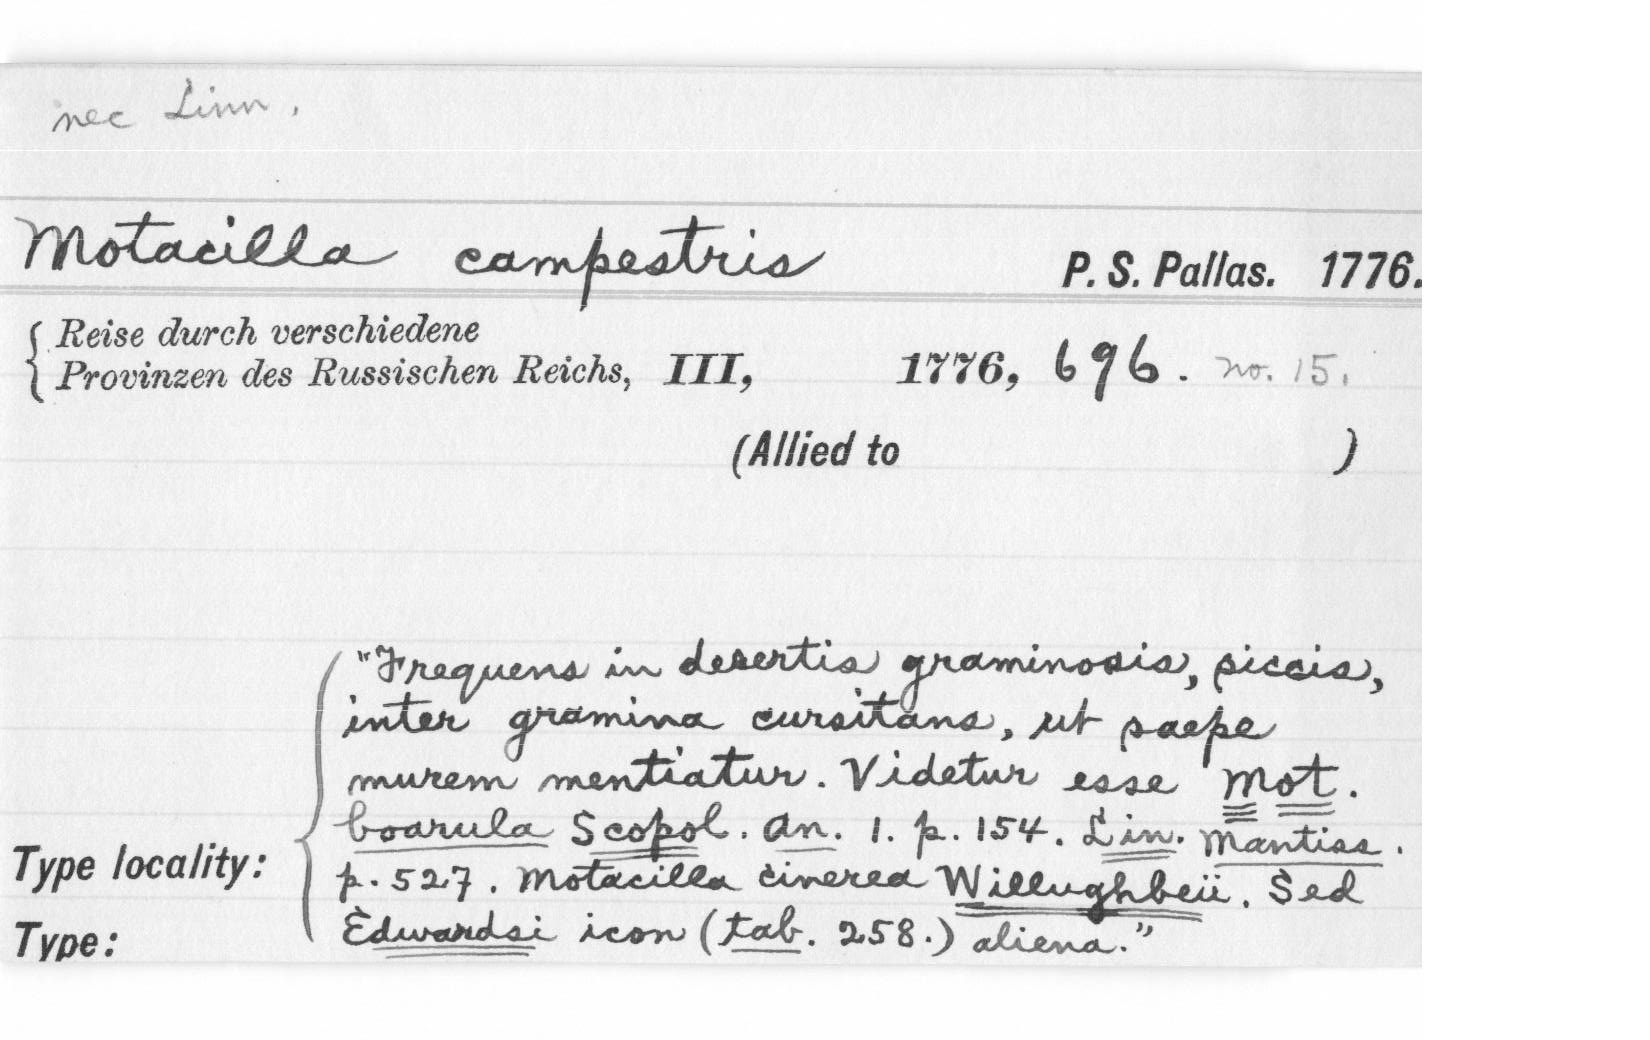 nec Linn.
Motacilla campestris P. S. Pallas. 1776.
Reise durch verschiedene
Provinzen des Russischen Reichs, III, 1776, 696. no. 15.
(Allied to )
"Frequens in desertis graminosis, siccis,
inter gramina cursitans, ut saepe
murem mentiatur. Videtur esse Mot.
boarula Scopol. An. 1. p. 154. Lin. Mantiss.
Type locality: p. 527. Motacilla cinerea Willughbeii. Sed
Type: Edwardsi icon (tab. 258.) aliena."